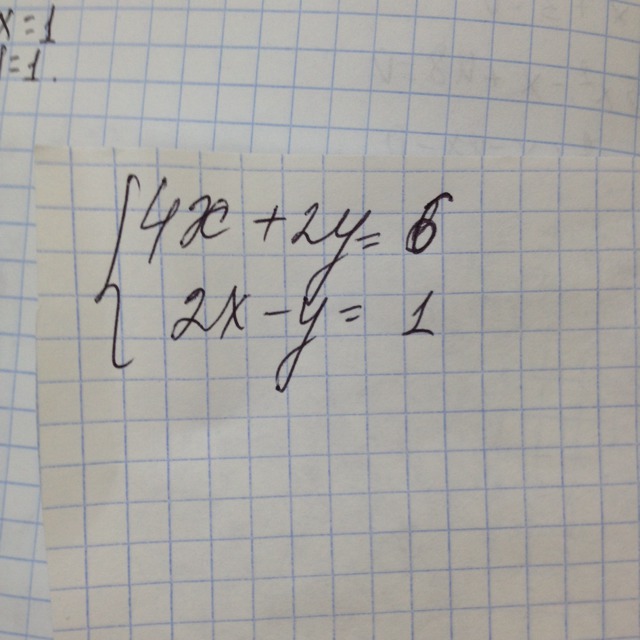 x=1
y=1.
4x+2y=6
2x-y=1